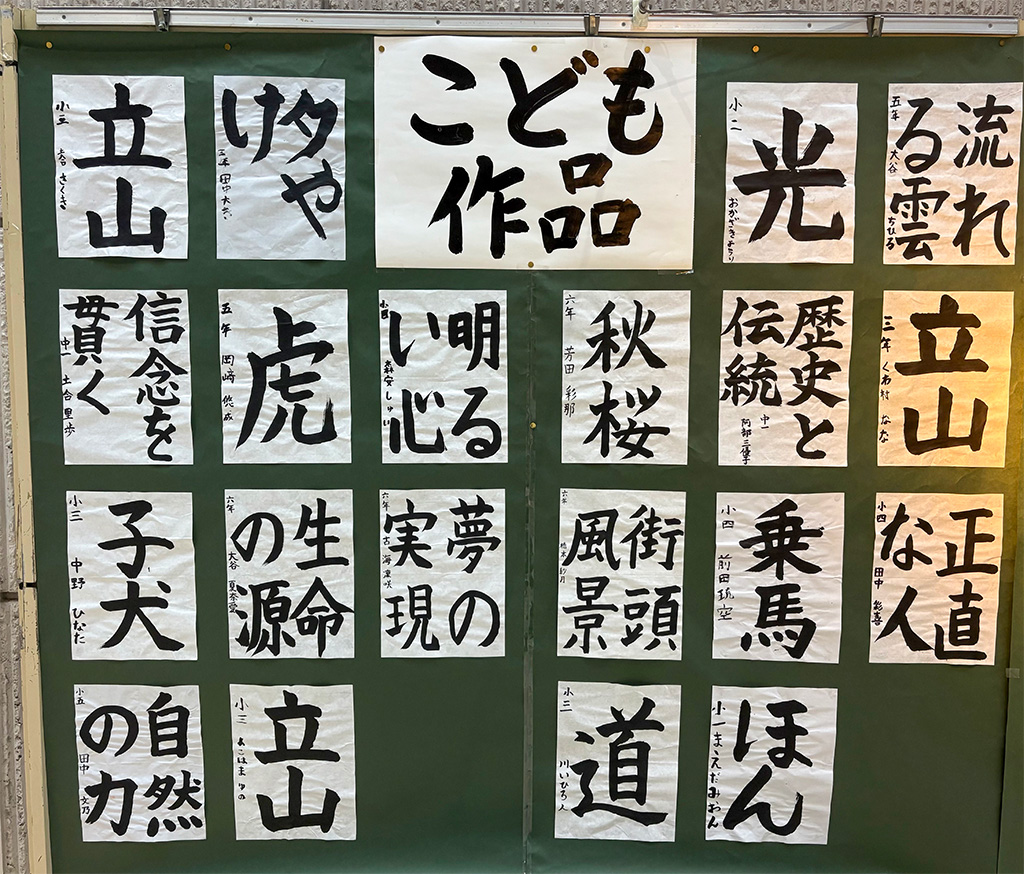 こども
作品
立山
小三
さくき
夕や
け
三年 田中
光
小二
おかざき
流れ
る雲
五年 大谷 ちひろ
信念を
貫く
中一 土合里歩
虎
五年 岡崎 悠成
明る
い心
小四 森安 しゅい
秋桜
六年 芳田 彩那
歴史と
伝統
中一 阿部三優子
立山
三年 くわ村 なな
子犬
小三 中野 ひなた
生命
の源
六年 大谷 夏奈愛
夢の
実現
六年 古海 凜咲
街頭
風景
六年 橋本
乗馬
小四 前田琉空
正直
な人
小四 田中
自然
の力
小五 田中 文乃
立山
小三 よこはま ゆの
道
小三 川いひろ人
ほん
小一 まえだみおん